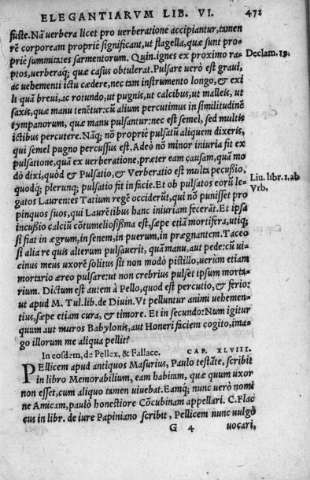 ELEGANTIARVM LIB. VI. 471
fuisse. Nã uerbera licet pro uerberatione accipiantur, tamen
rẽ corpoream proprie significant, ut flagella, quæ sunt pro=
prie summitates sarmentorum. Quin. ignes ex proximo ra=
Declam. 19.
ptos, uerberaq; quæ casus obtulerat. Pulsare uerò est graui,
ac uehementi ictu cædere, nec tam instrumento longo, & exi
li quã breui, ac rotundo, ut pugnis, ut calcibus, ut malleis, ut
saxis, quæ manu tenẽtur: cũ alium percutimus in similitudinẽ
tympanorum, quæ manu pulsantur: nec est semel, sed multis
ictibus percutere. Nãq; nõ propriè pulsatũ aliquem dixeris,
qui semel pugno percussus est. Adeò nõ minor iniuria fit ex
pulsatione, quã ex uerberatione, præter eam causam, quã mo
dò dixi, quòd & Pulsatio, & Verberatio est multa percussio,
quodq; plerunq; pulsatio fit in facie. Et ob pulsatos eorũ le=
Liu. libr. 1. ab
Vrb.
gatos Laurentes Tatium regẽ occiderũt, qui nõ punisset pro
pinquos suos, qui Laurẽtibus hanc iniuriam fecerãt. Et ipsa
incussio calciũ cõtumeliosissima est, sæpe etiã mortifera, utiq;
si fiat in ægrum, in senem, in puerum, in prægnantem. Taceo
si alia re quis alterum pulsauerit, quã manu, aut pede: cũ ui=
cinus meus uxorẽ solitus sit non modò pistillo, uerùm etiam
mortario æreo pulsare: ut non crebrius pulset ipsum morta=
rium. Dictum est autem à Pello, quod est percutio, & ferio:
ut apud M. Tul. lib. de Diuin. Vt pelluntur animi uehemen=
tius, sæpe etiam cura, & timore. Et in secundo: Num igitur
quum aut muros Babylonis, aut Homeri faciem cogito, ima=
go illorum me aliqua pellit?
In eosdem, de Pellex, & Fallace. CAP. XLVIII.
PEllicem apud antiquos Masurius, Paulo testãte, scribit
in libro Memorabilium, eam habitam, quæ quum uxor
non esset, cum aliquo tamen uiuebat. Eamq; nunc uerò nomi
ne Amicam, paulò honestiore Cõcubinam appellari. C. Flac
cus in libr. de iure Papiniano scribit, Pellicem nunc uulgò
G 4 uocari,